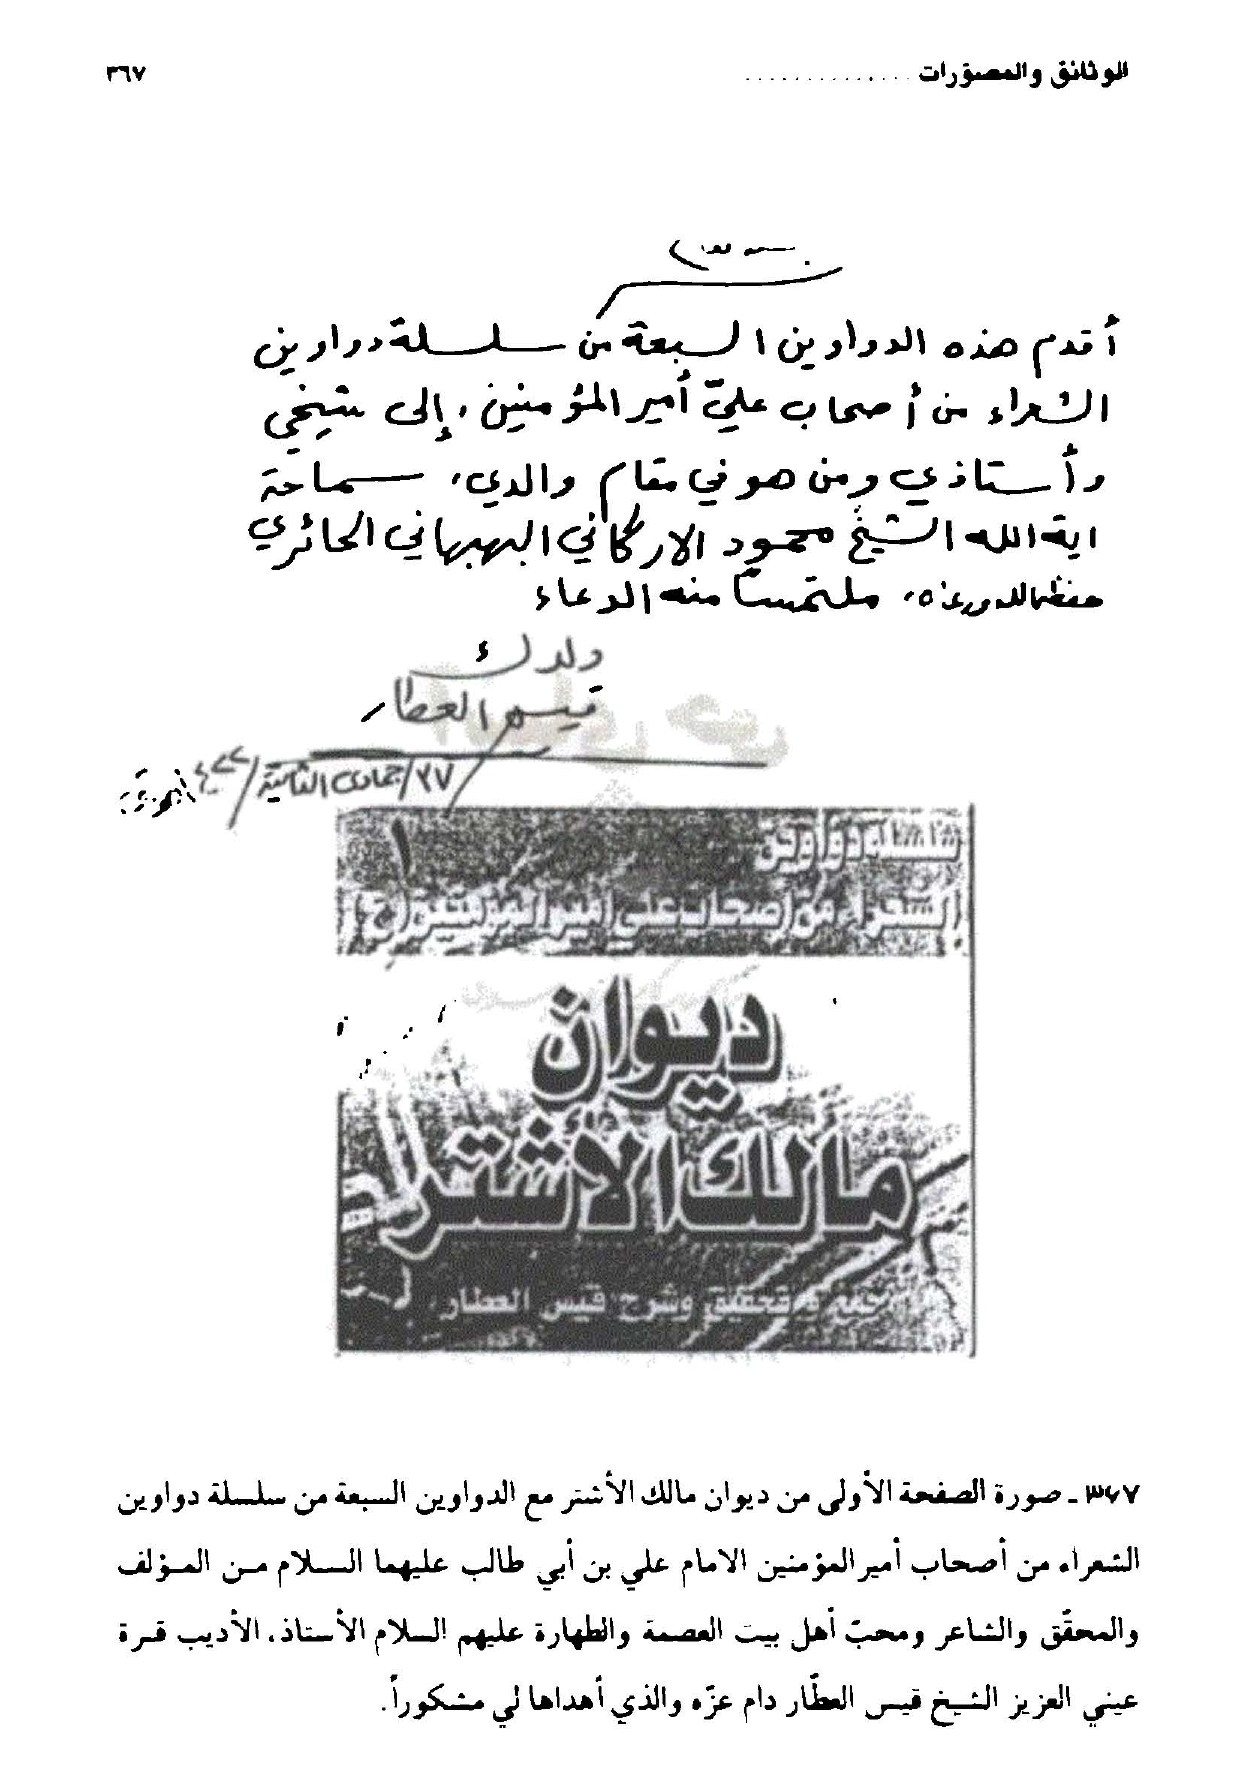 الوثائق والمصوّرات .............. ٣٦٧
بسمه تعالى
أقدم هذه الدواوين السبعة من سلسلة دواوين
الشعراء من أصحاب عليّ أمير المؤمنين، إلى شيخي
وأستاذي ومن هو في مقام والدي، سماحة
اية الله الشيخ محمود الاركاني البهبهاني الحائري
حفظه الله ورعاه، ملتمساً منه الدعاء
ولدك
قيس العطار
٢٧/جمادى الثانية/
سلسلة دواوين
١
الشعراء من أصحاب علي أمير المؤمنين (ع)
ديوان
مالك الأشتر
جمع وتحقيق وشرح: قيس العطار
٣٦٧ ـ صورة الصفحة الأولى من ديوان مالك الأشتر مع الدواوين السبعة من سلسلة دواوين
الشعراء من أصحاب أمير المؤمنين الامام علي بن أبي طالب عليهما السلام من المؤلف
والمحقّق والشاعر ومحبّ أهل بيت العصمة والطهارة عليهم السلام الأستاذ، الأديب قرة
عيني العزيز الشيخ قيس العطّار دام عزّه والذي أهداها لي مشكوراً.